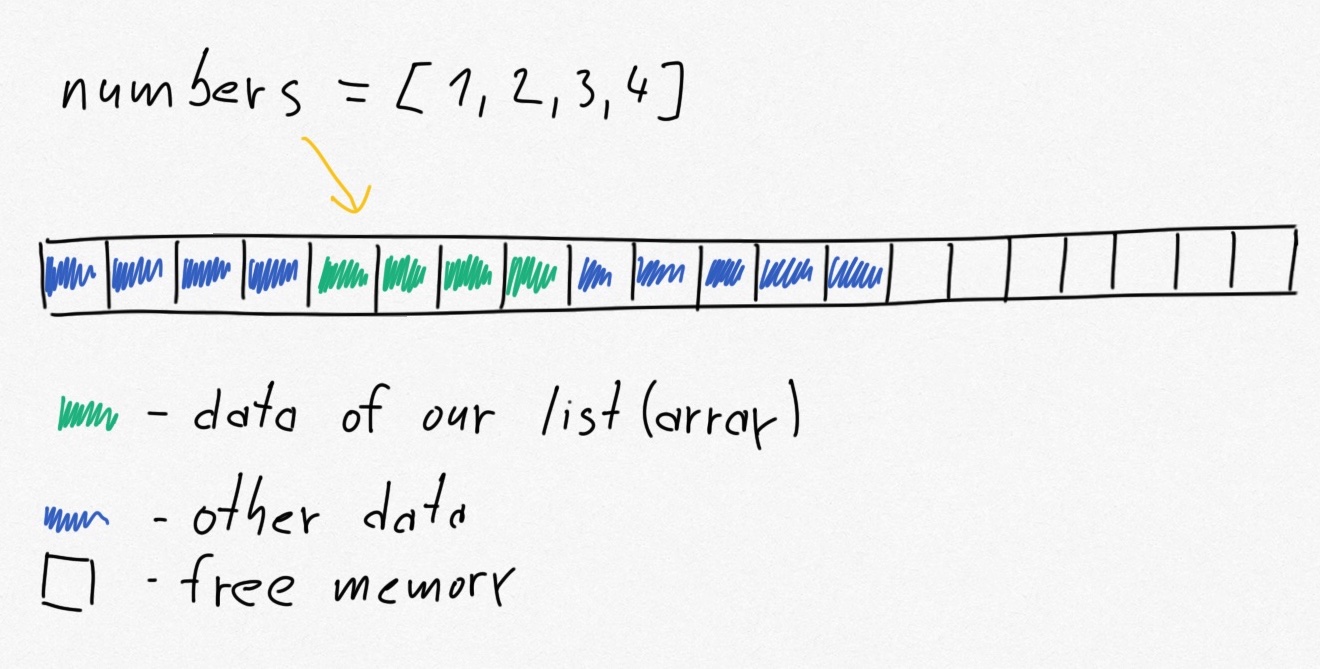 numbers = [1, 2, 3, 4]
- data of our list (array)
- other data
- free memory